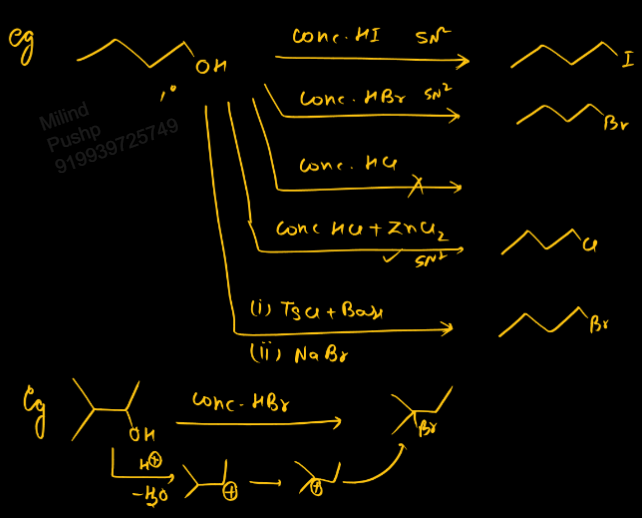 eg
OH
1°
Conc. HI SN²
I
Conc. HBr SN²
Br
Conc. HCl
Conc HCl + ZnCl₂
SN²
Cl
(i) TsCl + Base
(ii) NaBr
Br
Milind
Pushp
919939725749
Eg
OH
Conc. HBr
Br
H⊕
-H₂O
⊕
⊕